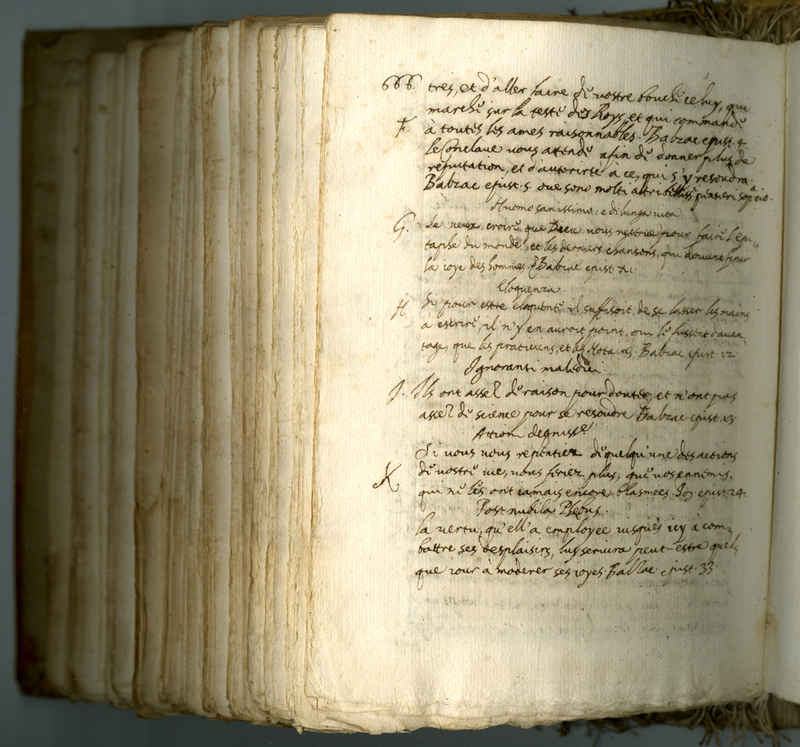 666. tres, et d'aller faire de vostre bouche celuy, qui
marche sur la teste des Roys, et qui commande
F. à toutes les ames raisonnables. Balzac epist. 4
le Conclave vous attend afin de donner plus de
reputation, et d'autorité à ce, qui s'y resoudra.
Balzac epist. 5 ove sono molti
Huomo sanissimo: e di lunga vita
G. Je veux croire, que Dieu vous reserve pour faire l'epi
taphe du monde, et les derniers chansons, qui doivent finir
la ioye des hommes. Balzac epist
Eloquenza.
H. Si pour estre eloquent il suffisoit de se lasser les mains
à escrire, il n'y en auroit point, qui le fussent davan
tage, que les praticiens, et les Notaires. Balzac epist. 12
Ignoranti maledici.
J. Ils ont assez de raison pour douter, et n'ont pas
assez de science pour se resoudre Balzac epist. 13
Attioni degnisse.
Si vous vous repentiez de quelqu'une des actions
K de vostre vie, vous feriez plus, que vos ennemis,
qui ne les ont iamais encore blasmees. epist. 24.
Post nubila Phebus.
la vertu, qu'ell'a employee iusques icy à com
battre ses desplaisirs, luy servira peut-estre quel
que iour à moderer ses ioyes. Balzac. epist. 33